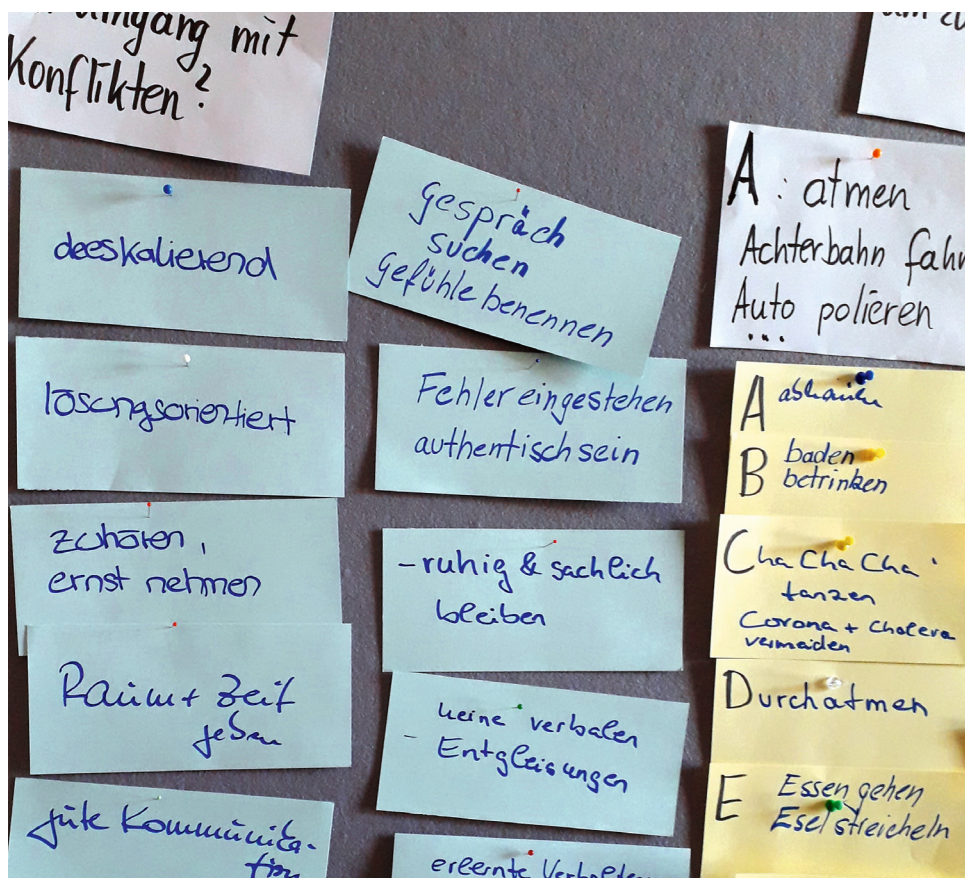 Umgang mit
Konflikten?
deeskalierend
lösungsorientiert
zuhören,
ernst nehmen
Raum + Zeit
geben
gute Kommunika-
tion
Gespräch
suchen
Gefühle benennen
Fehler eingestehen
authentisch sein
- ruhig & sachlich
bleiben
keine verbalen
- Entgleisungen
erlernte Verhalten
A: atmen
Achterbahn fahr
Auto polieren
...
A
B baden
betrinken
Cha Cha Cha
tanzen
Corona + Cholera
vermeiden
Durchatmen
E Essen gehen
Esel streicheln